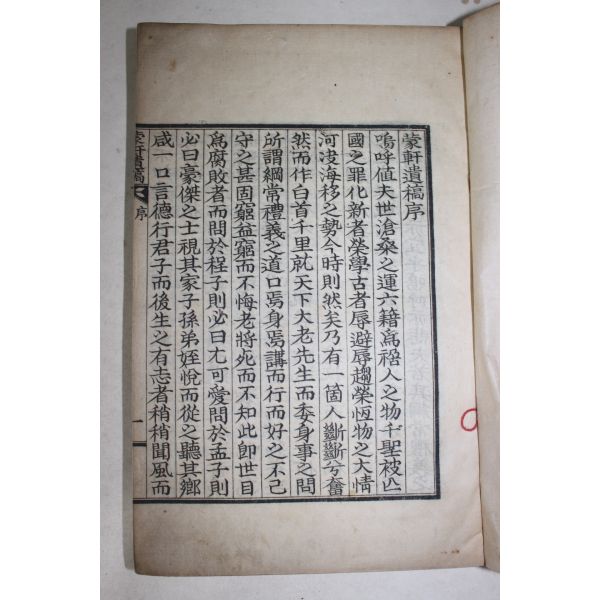 蒙軒遺稿序
嗚呼値夫世滄桑之運六籍爲禍人之物千聖被亾
國之罪化新者榮學古者辱避辱趨榮恆物之大情
河決海移之勢今時則然矣乃有一箇人斷斷兮奮
然而作白首千里就天下大老先生而委身事之問
所謂綱常禮義之道口焉身焉講而行好之不已
守之甚固窮益窮而不悔老將死而不知此卽世目
爲腐敗者而問於程子則必曰尤可愛問於孟子則
必曰豪傑之士視其家子孫弟姪悅而從之聽其鄕
咸一口言德行君子而後生之有志者稍稍聞風而
蒙軒遺稿 序 一